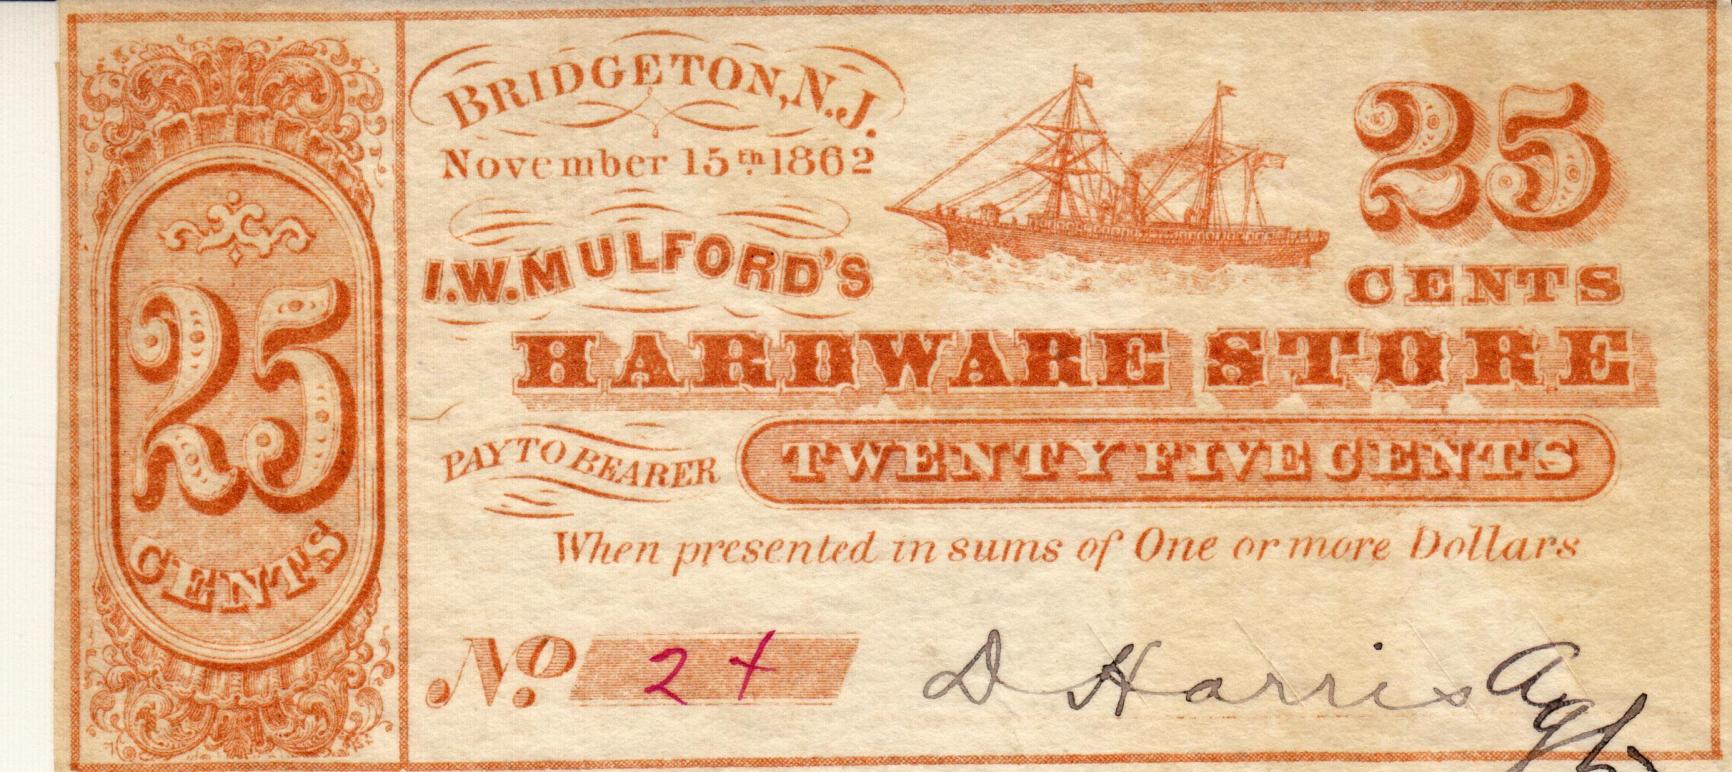 25
CENTS
BRIDGETON, N.J.
November 15th 1862
I.W. MULFORD'S
25
CENTS
HARDWARE STORE
PAY TO BEARER TWENTY FIVE CENTS
When presented in sums of One or more Dollars
No. 2 D Harris Agt